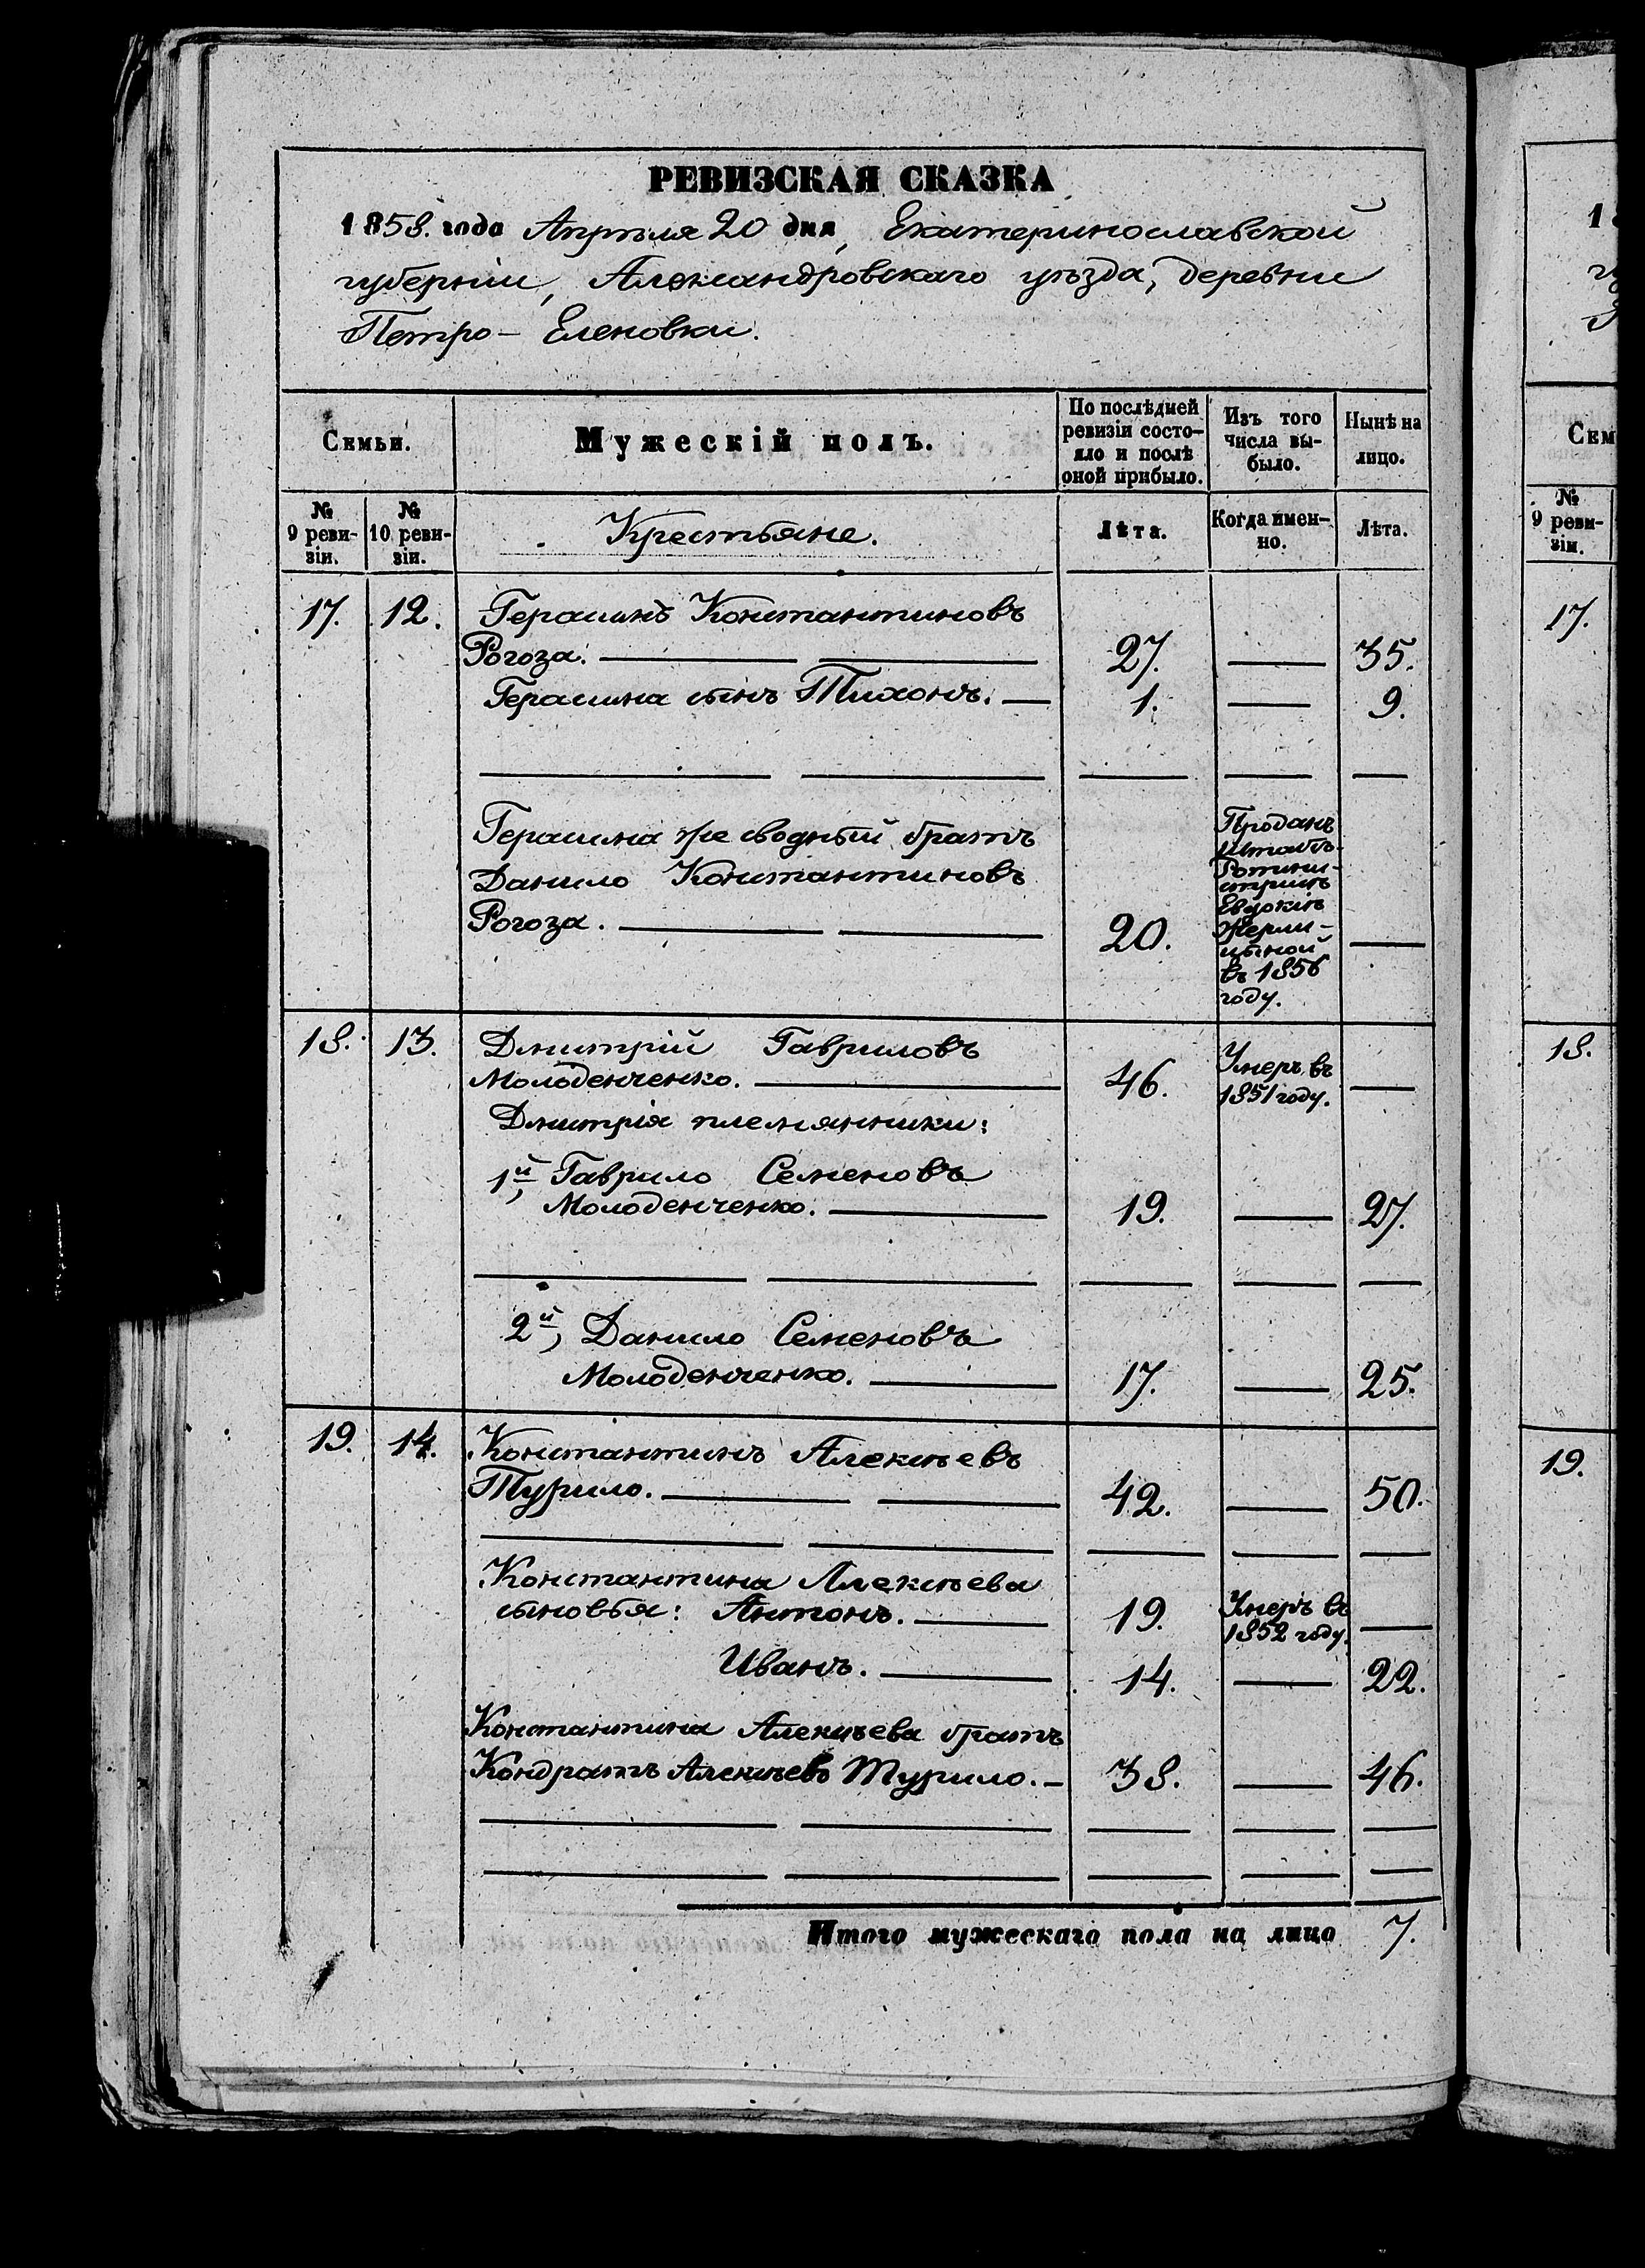 РЕВИЗСКАЯ СКАЗКА
1858. года Апрѣля 20 дня, Екатеринославской
губерніи, Александровскаго уѣзда, деревни
Петро- Еленовки.
Семьи.
Мужескій полъ.
По послѣдней
ревизіи состо-
яло и послѣ
оной прибыло.
Изъ того
числа вы-
было.
Нынѣ на
лицо.
№
9 реви-
зіи.
№
10 реви-
зіи.
Крестьяне.
Лѣта.
Когда имен-
но.
Лѣта.
17. 12. Герасимъ Константиновъ
Рогоза. 27. 35.
Герасима сынъ Тихонъ. 1. 9.
Герасима же сводный братъ
Данило Константиновъ
Рогоза. 20.
Проданъ
Штабъ-
Ротми-
стршѣ
Евдокіѣ
въ 1856
году.
18. 13. Дмитрій Гавриловъ
Молоденченко. 46. Умеръ въ
1851 году.
Дмитрія племянники:
1й, Гаврило Семеновъ
Молоденченко. 19. 27.
2й, Данило Семеновъ
Молоденченко. 17. 25.
19. 14. Константинъ Алексѣевъ
Турило. 42. 50.
Константина Алексѣева
сыновья: Антонъ. 19. Умеръ въ
1852 году.
Иванъ. 14. 22.
Константина Алексѣева братъ
Кондратъ Алексѣевъ Турило. 38. 46.
Итого мужескаго пола на лицо 7.
1
Сем
№
9 реви-
зіи.
17.
18.
19.